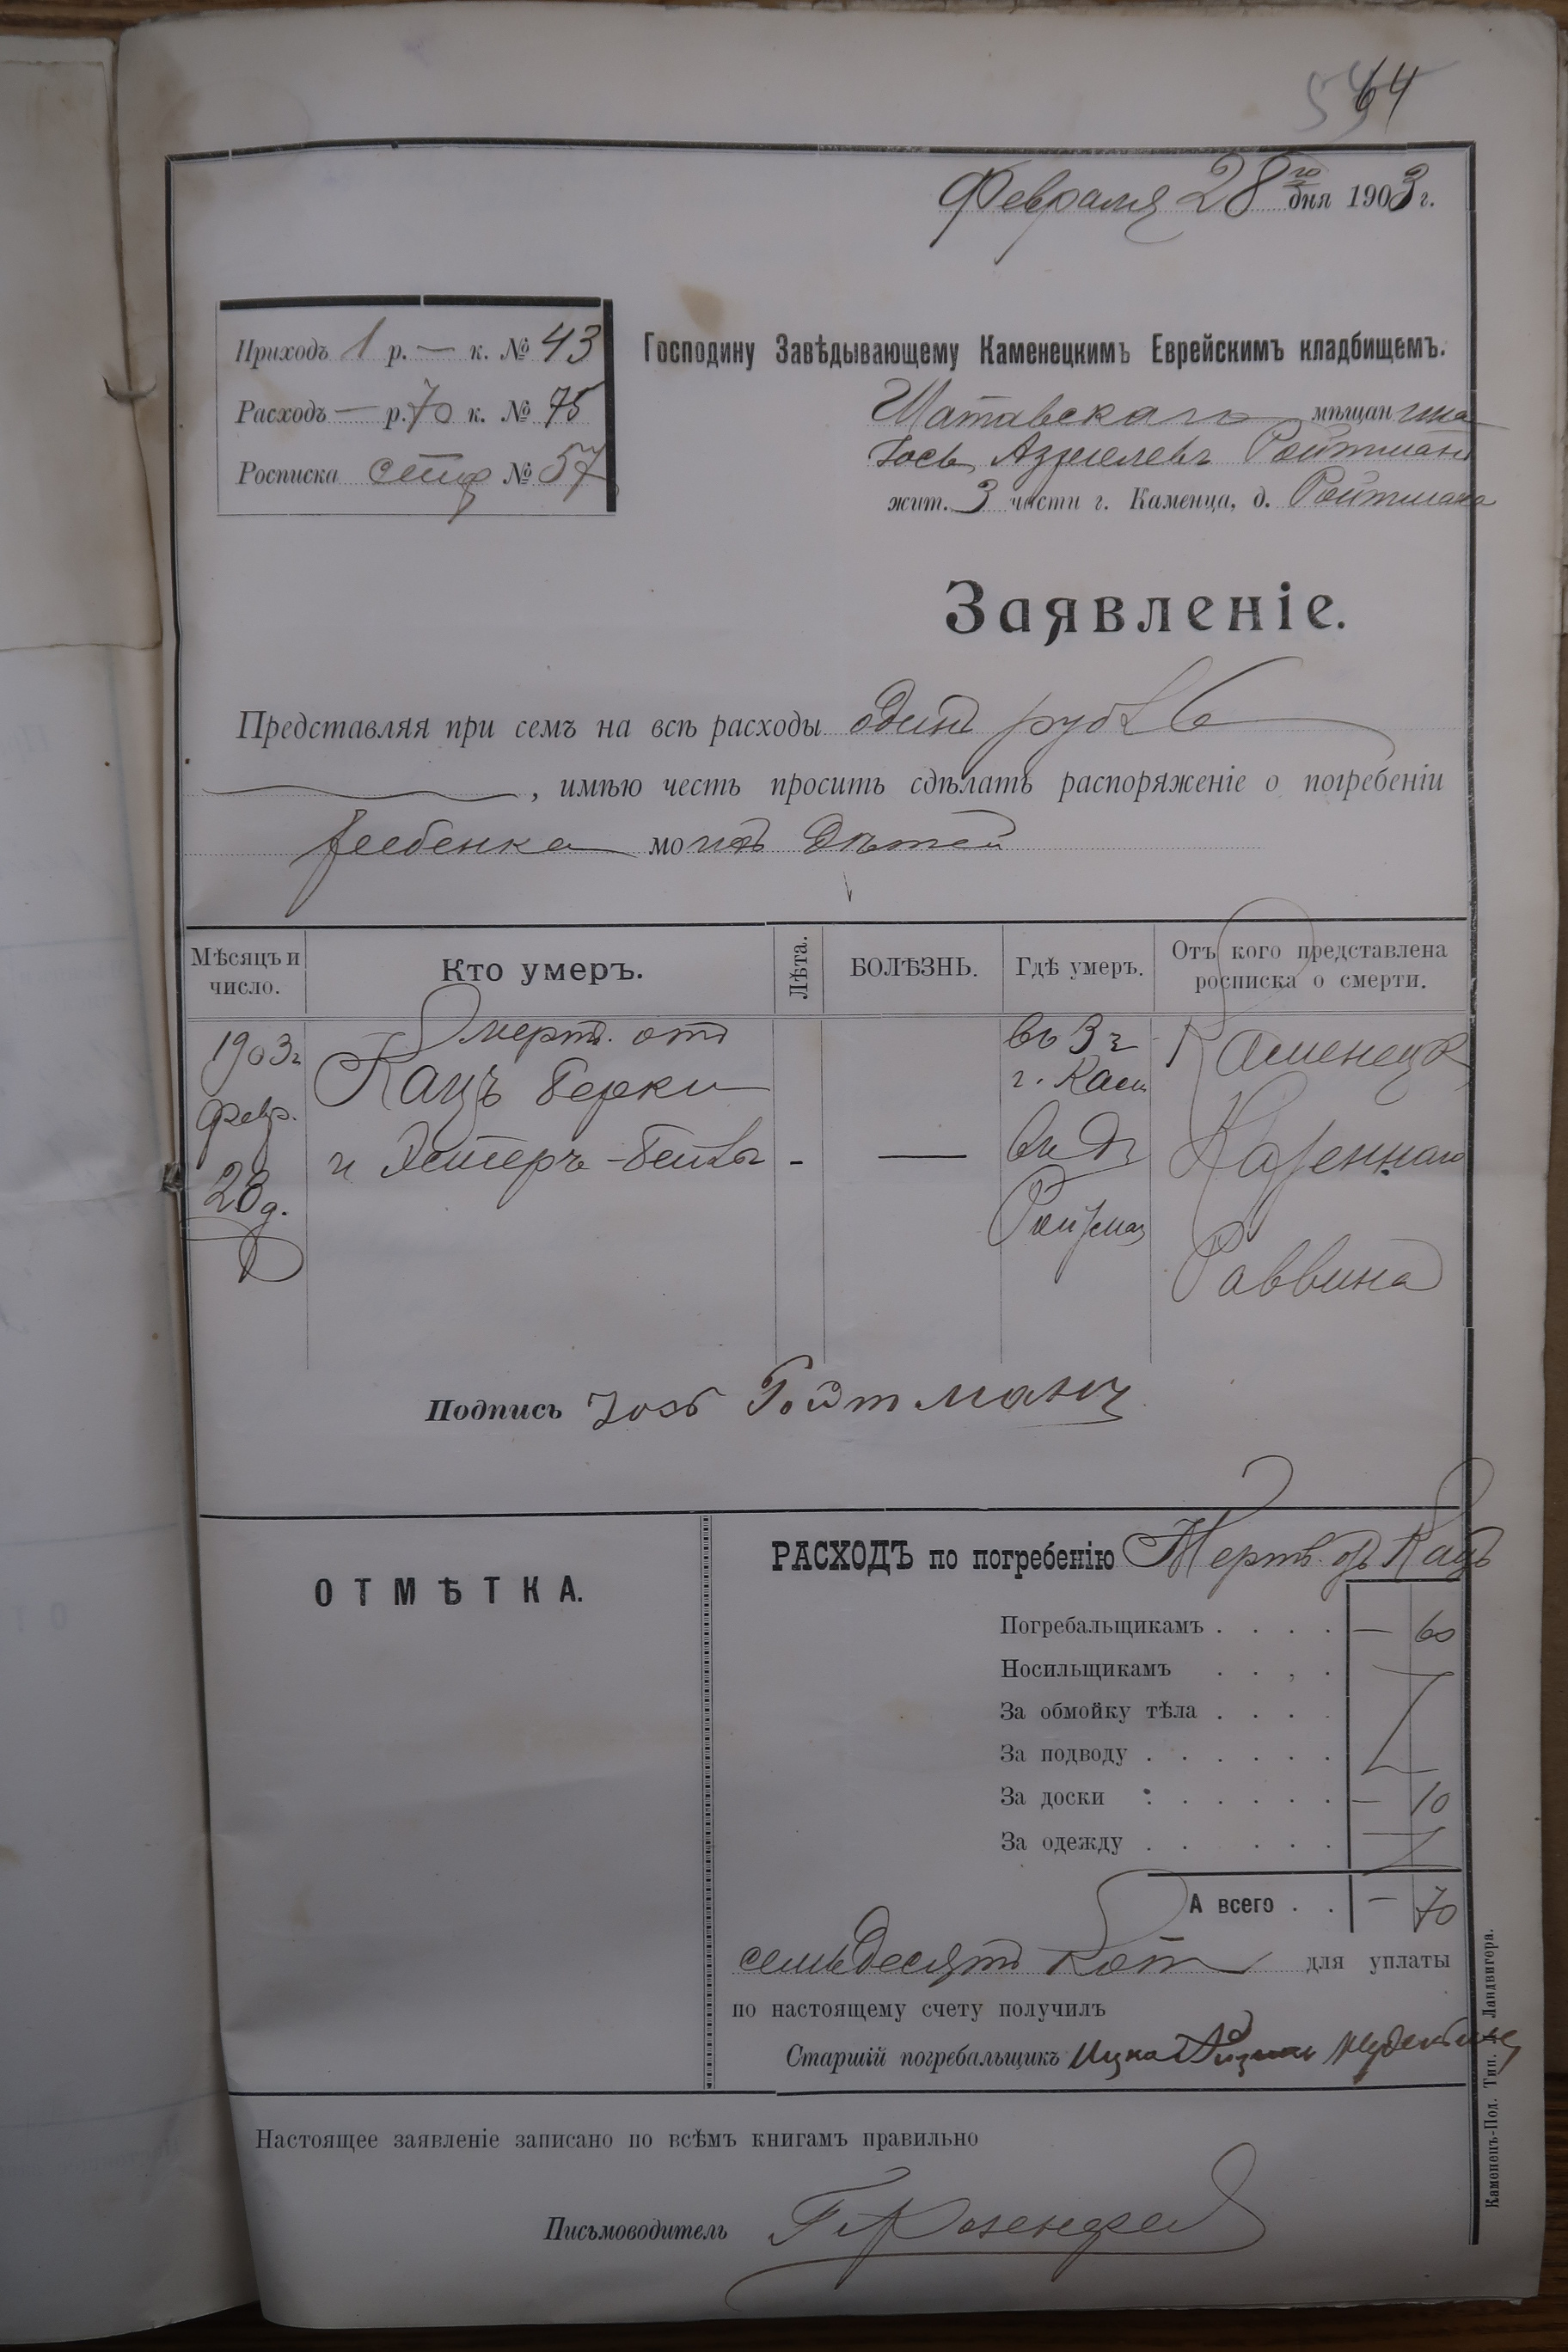 64
Февраля 28го дня 1903 г.
Приходъ 1 р. — к. № 43
Расходъ — р. 70 к. № 75
Росписка № 57
Господину Завѣдывающему Каменецкимъ Еврейскимъ кладбищемъ.
Шатавскаго мѣщанина
Іось Азриелевъ Ройтманъ
жит. 3 части г. Каменца, д. Ройтмана
Заявленіе.
Представляя при семъ на всѣ расходы одинъ рубль
, имѣю честь просить сдѣлать распоряженіе о погребеніи
ребенка моихъ дѣтей
Мѣсяцъ и число.
Кто умеръ.
Лѣта.
БОЛѢЗНЬ.
Гдѣ умеръ.
Отъ кого представлена росписка о смерти.
1903г
Февр.
28 д.
Мертв. отъ
Кацъ Берки
и Эстеръ-Бейлы
-
—
въ 3 ч
г. Кам
въ д.
Каменецк
Казеннаго
Раввина
Подпись Іозъ Ройтманъ
ОТМѢТКА.
РАСХОДЪ по погребенію Мертв. отъ Кацъ
Погребальщикамъ . . . . — 60
Носильщикамъ . . . .
За обмойку тѣла . . . .
За подводу . . . . . .
За доски . . . . . . — 10
За одежду . . . . .
А всего . . — 70
семьдесятъ коп для уплаты
по настоящему счету получилъ
Старшій погребальщикъ Ицко
Настоящее заявленіе записано по всѣмъ книгамъ правильно
Письмоводитель Розенфел
Каменецъ-Под. Тип. Ландвигора.